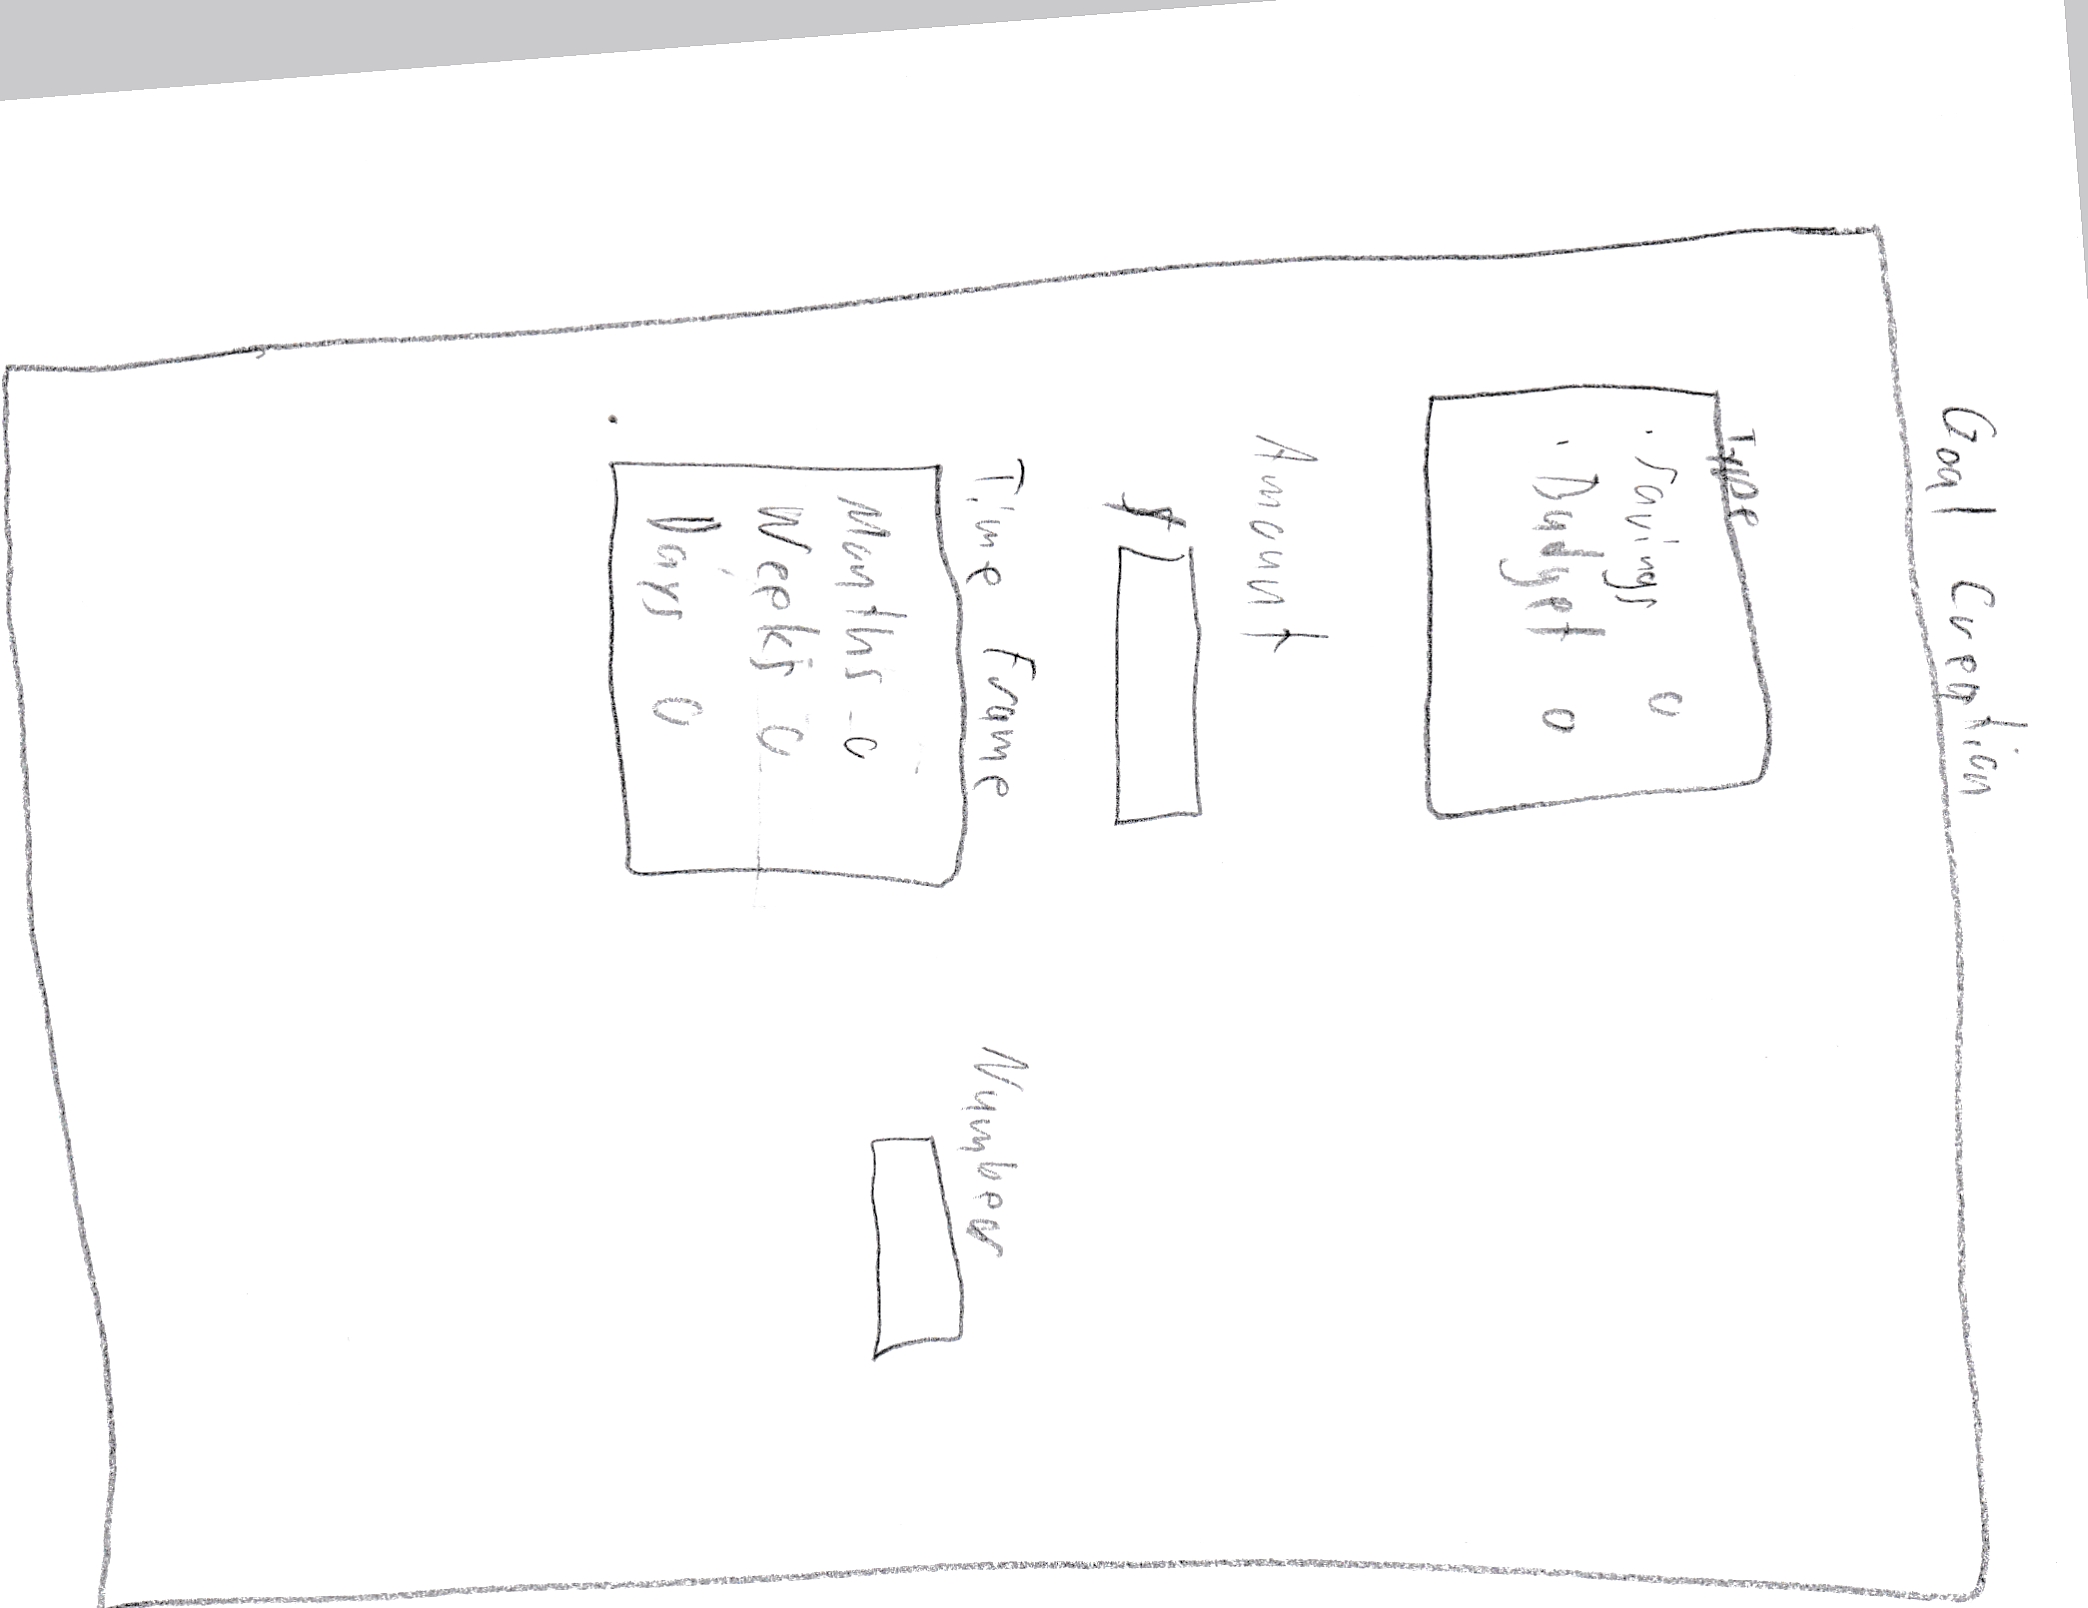 Goal Creation
Type
· Savings O
· Budget O
Amount
$
Time Frame
Number
Months - O
Weeks O
Days O